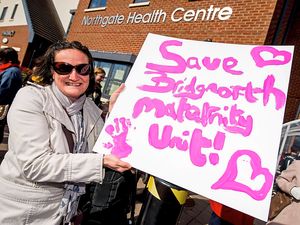 Northgate Health Centre
Save
Bridgnorth
Maternity
Unit!